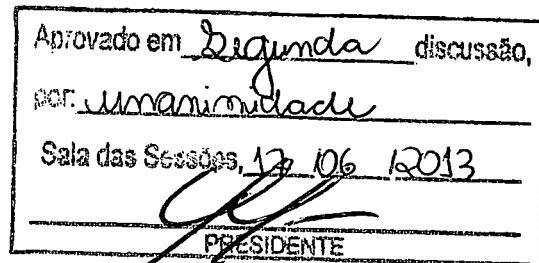 Aprovado em Segunda discussão,
por: unanimidade
Sala das Sessões, /06 /2013
PRESIDENTE